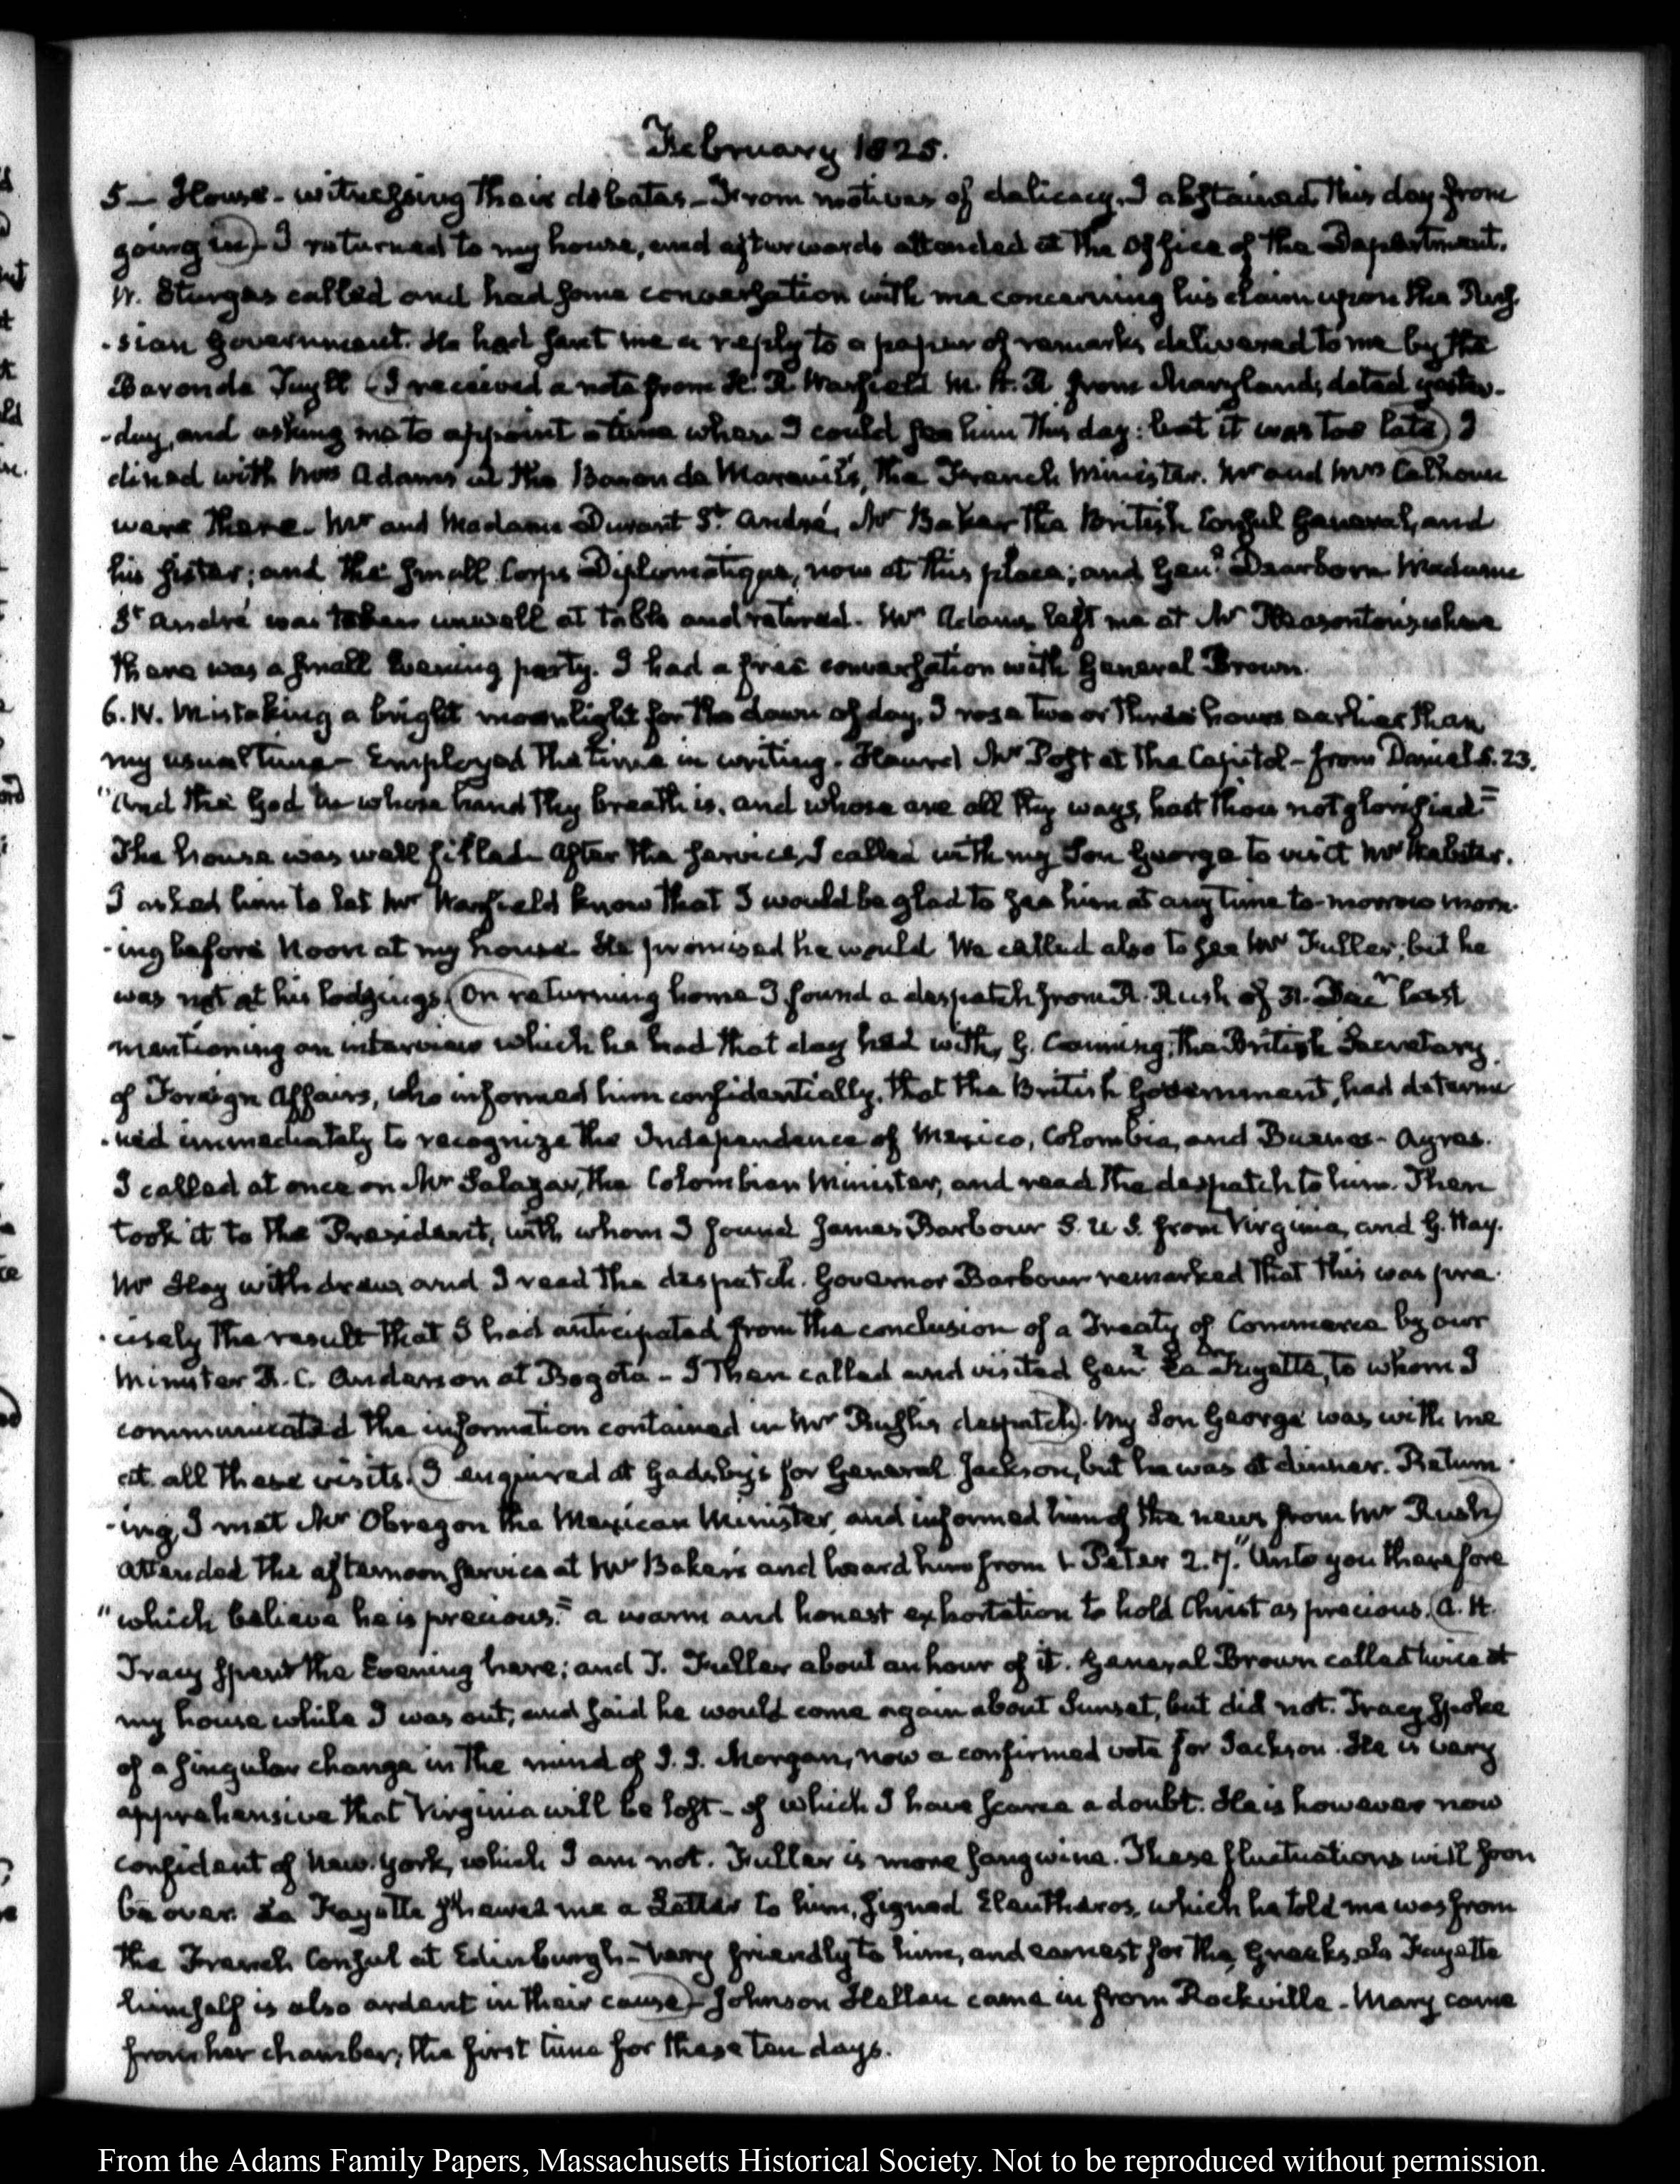 February 1825.
5— House - witnessing their debates - From motives of delicacy, I abstained this day from
going in) - I returned to my house, and afterwards attended at the Office of the Department.
W. Sturges called and had some conversation with me concerning his claim upon the Rus-
-sian Government. He had sent me a reply to a paper of remarks delivered to me by the
Baron de Tuyll (I received a note from H. R. Warfield M. H. R. from Maryland, dated yester-
-day, and asking me to appoint a time when I could see him this day: but it was too late) I
dined with Mrs Adams at the Baron de Mareuil's, the French Minister. Mr and Mrs Calhoun
were there. Mr and Madame Durant St. André, Mr Baker the British Consul General, and
his Sister; and the small Corps Diplomatique, now at this place; and Genl. Dearborn. Madame
St André was taken unwell at table and retired. Mrs Adams left me at Mr Persontons where
there was a small Evening party. I had a free conversation with General Brown.
6. IV. Mistaking a bright moonlight for the dawn of day, I rose two or three hours earlier than
my usual time - Employed the time in writing. Heard Mr Post at the Capitol - from Daniel 5. 23.
"And the God in whose hand thy breath is, and whose are all thy ways, hast thou not glorified"
The house was well filled. After the service, I called with my Son George to visit Mr Webster.
I asked him to let Mr Warfield know that I would be glad to see him at any time to-morrow morn-
-ing before Noon at my house. He promised he would. We called also to see Mr Fuller, but he
was not at his lodgings. (On returning home I found a despatch from R. Rush of 31. Decr last
mentioning an interview which he had that day had with G. Canning, the British Secretary
of Foreign Affairs, who informed him confidentially, that the British Government, had determi-
-ned immediately to recognize the Independence of Mexico, Colombia, and Buenos-Ayres.
I called at once on Mr Salazar, the Colombian Minister, and read the despatch to him. Then
took it to the President, with whom I found James Barbour S. U. S. from Virginia, and G. Hay.
Mr Hay withdrew and I read the despatch. Governor Barbour remarked that this was pre-
-cisely the result that I had anticipated from the conclusion of a Treaty of Commerce by our
Minister R. C. Anderson at Bogota - I then called and visited Genl La Fayette, to whom I
communicated the information contained in Mr Rush's despatch). My Son George was with me
at all these visits. (I enquired at Gadsby's for General Jackson, but he was at dinner. Return-
-ing, I met Mr Obregon the Mexican Minister, and informed him of the news from Mr Rush)
Attended the afternoon service at Mr Baker's and heard him from 1 Peter 2. 7. "Unto you therefore
"which believe he is precious." a warm and honest exhortation to hold Christ as precious. (A. H.
Tracy spent the Evening here; and T. Fuller about an hour of it. General Brown called twice at
my house while I was out, and said he would come again about Sunset, but did not. Tracy spoke
of a singular change in the mind of J. J. Morgan, now a confirmed vote for Jackson. He is very
apprehensive that Virginia will be lost - of which I have scarce a doubt. He is however now
confident of New-York, which I am not. Fuller is more sanguine. These fluctuations will soon
be over. La Fayette shewed me a Letter to him, signed Eleutheros, which he told me was from
the French Consul at Edinburgh - very friendly to him, and earnest for the Greeks. La Fayette
himself is also ardent in their cause) - Johnson Hellen came in from Rockville - Mary came
from her chamber, the first time for these ten days.
From the Adams Family Papers, Massachusetts Historical Society. Not to be reproduced without permission.